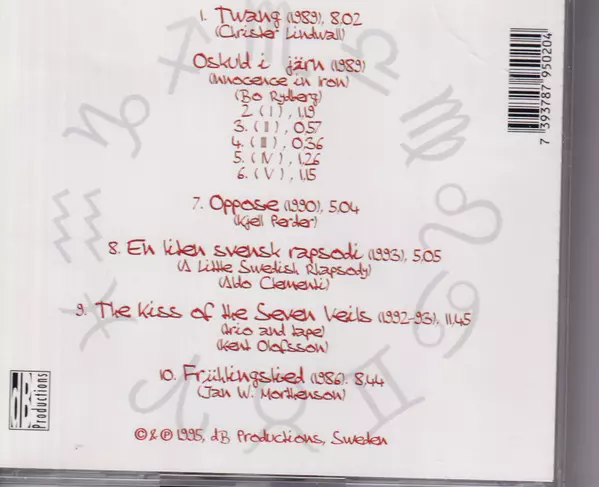 1. Twang (1989), 8.02
(Christer Lindwall)
Oskuld i järn (1989)
(Innocence in Iron)
(Bo Rydberg)
2. (I), 1.19
3. (II), 0.57
4. (III), 0.36
5. (IV), 1.26
6. (V), 1.15
7. Oppose (1990), 5.04
(Kjell Perder)
8. En liten svensk rapsodi (1993), 5.05
(A Little Swedish Rhapsody)
(Aldo Clementi)
9. The Kiss of the Seven Veils (1992-93), 11.45
(trio and tape)
(Kent Olofsson)
10. Frühlingslied (1986). 8.44
(Jan W. Morthenson)
© & ℗ 1995, dB Productions, Sweden
dB Productions
7 393787 950204